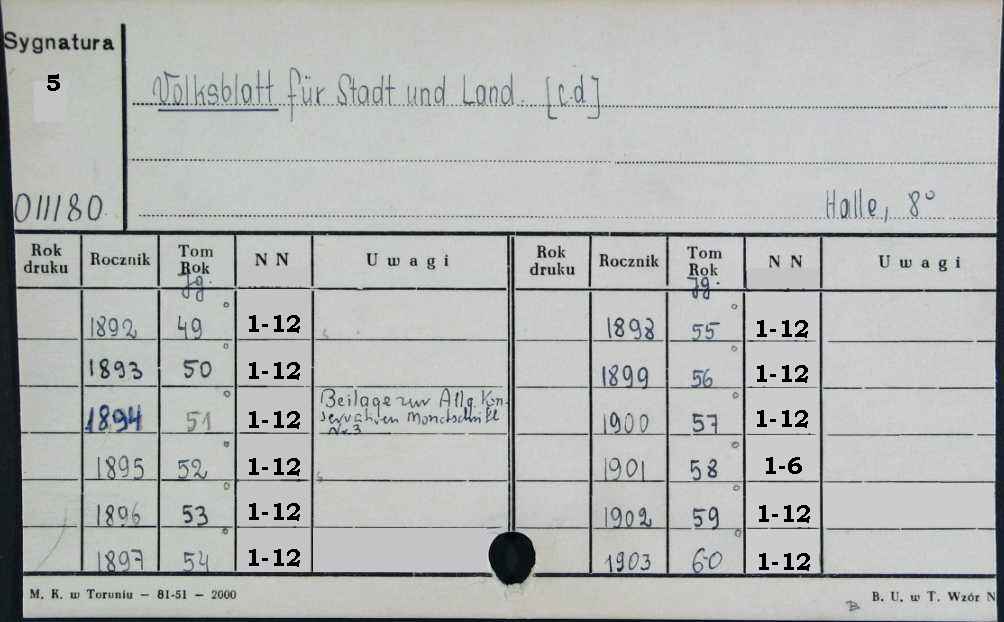 Sygnatura
5
Volksblatt für Stadt und Land. [c.d]
011180
Halle, 8°
Rok druku Rocznik Tom Rok Jg. N N Uwagi Rok druku Rocznik Tom Rok Jg. N N Uwagi
1892 49 1-12 1898 55 1-12
1893 50 1-12 1899 56 1-12
1894 51 1-12 Beilage zur Allg. Kon-servativen Monatsschrift Nr. 3 1900 57 1-12
1895 52 1-12 1901 58 1-6
1896 53 1-12 1902 59 1-12
1897 54 1-12 1903 60 1-12
M. K. w Toruniu — 81-51 — 2000
B. U. w T. Wzór N